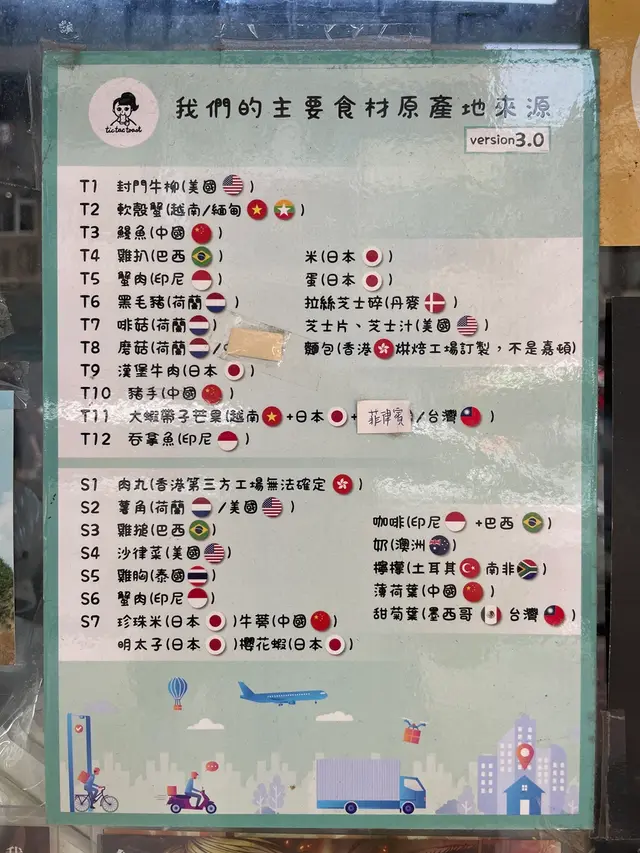 tic tac toast
我們的主要食材原產地來源
version3.0
T1 封門牛柳(美國)
T2 軟殼蟹(越南/緬甸)
T3 鰻魚(中國)
T4 雞扒(巴西)
T5 蟹肉(印尼)
T6 黑毛豬(荷蘭)
T7 啡菇(荷蘭)
T8 磨菇(荷蘭/
T9 漢堡牛肉(日本)
T10 豬手(中國)
T11 大蝦帶子芒果(越南+日本+菲律賓/台灣)
T12 吞拿魚(印尼)
米(日本)
蛋(日本)
拉絲芝士碎(丹麥)
芝士片、芝士汁(美國)
麵包(香港烘焙工場訂製，不是嘉頓)
S1 肉丸(香港第三方工場無法確定)
S2 薯角(荷蘭/美國)
S3 雞搥(巴西)
S4 沙律菜(美國)
S5 雞胸(泰國)
S6 蟹肉(印尼)
S7 珍珠米(日本)牛蒡(中國)
明太子(日本)櫻花蝦(日本)
咖啡(印尼+巴西)
奶(澳洲)
檸檬(土耳其南非)
薄荷葉(中國)
甜菊葉(墨西哥 台灣)